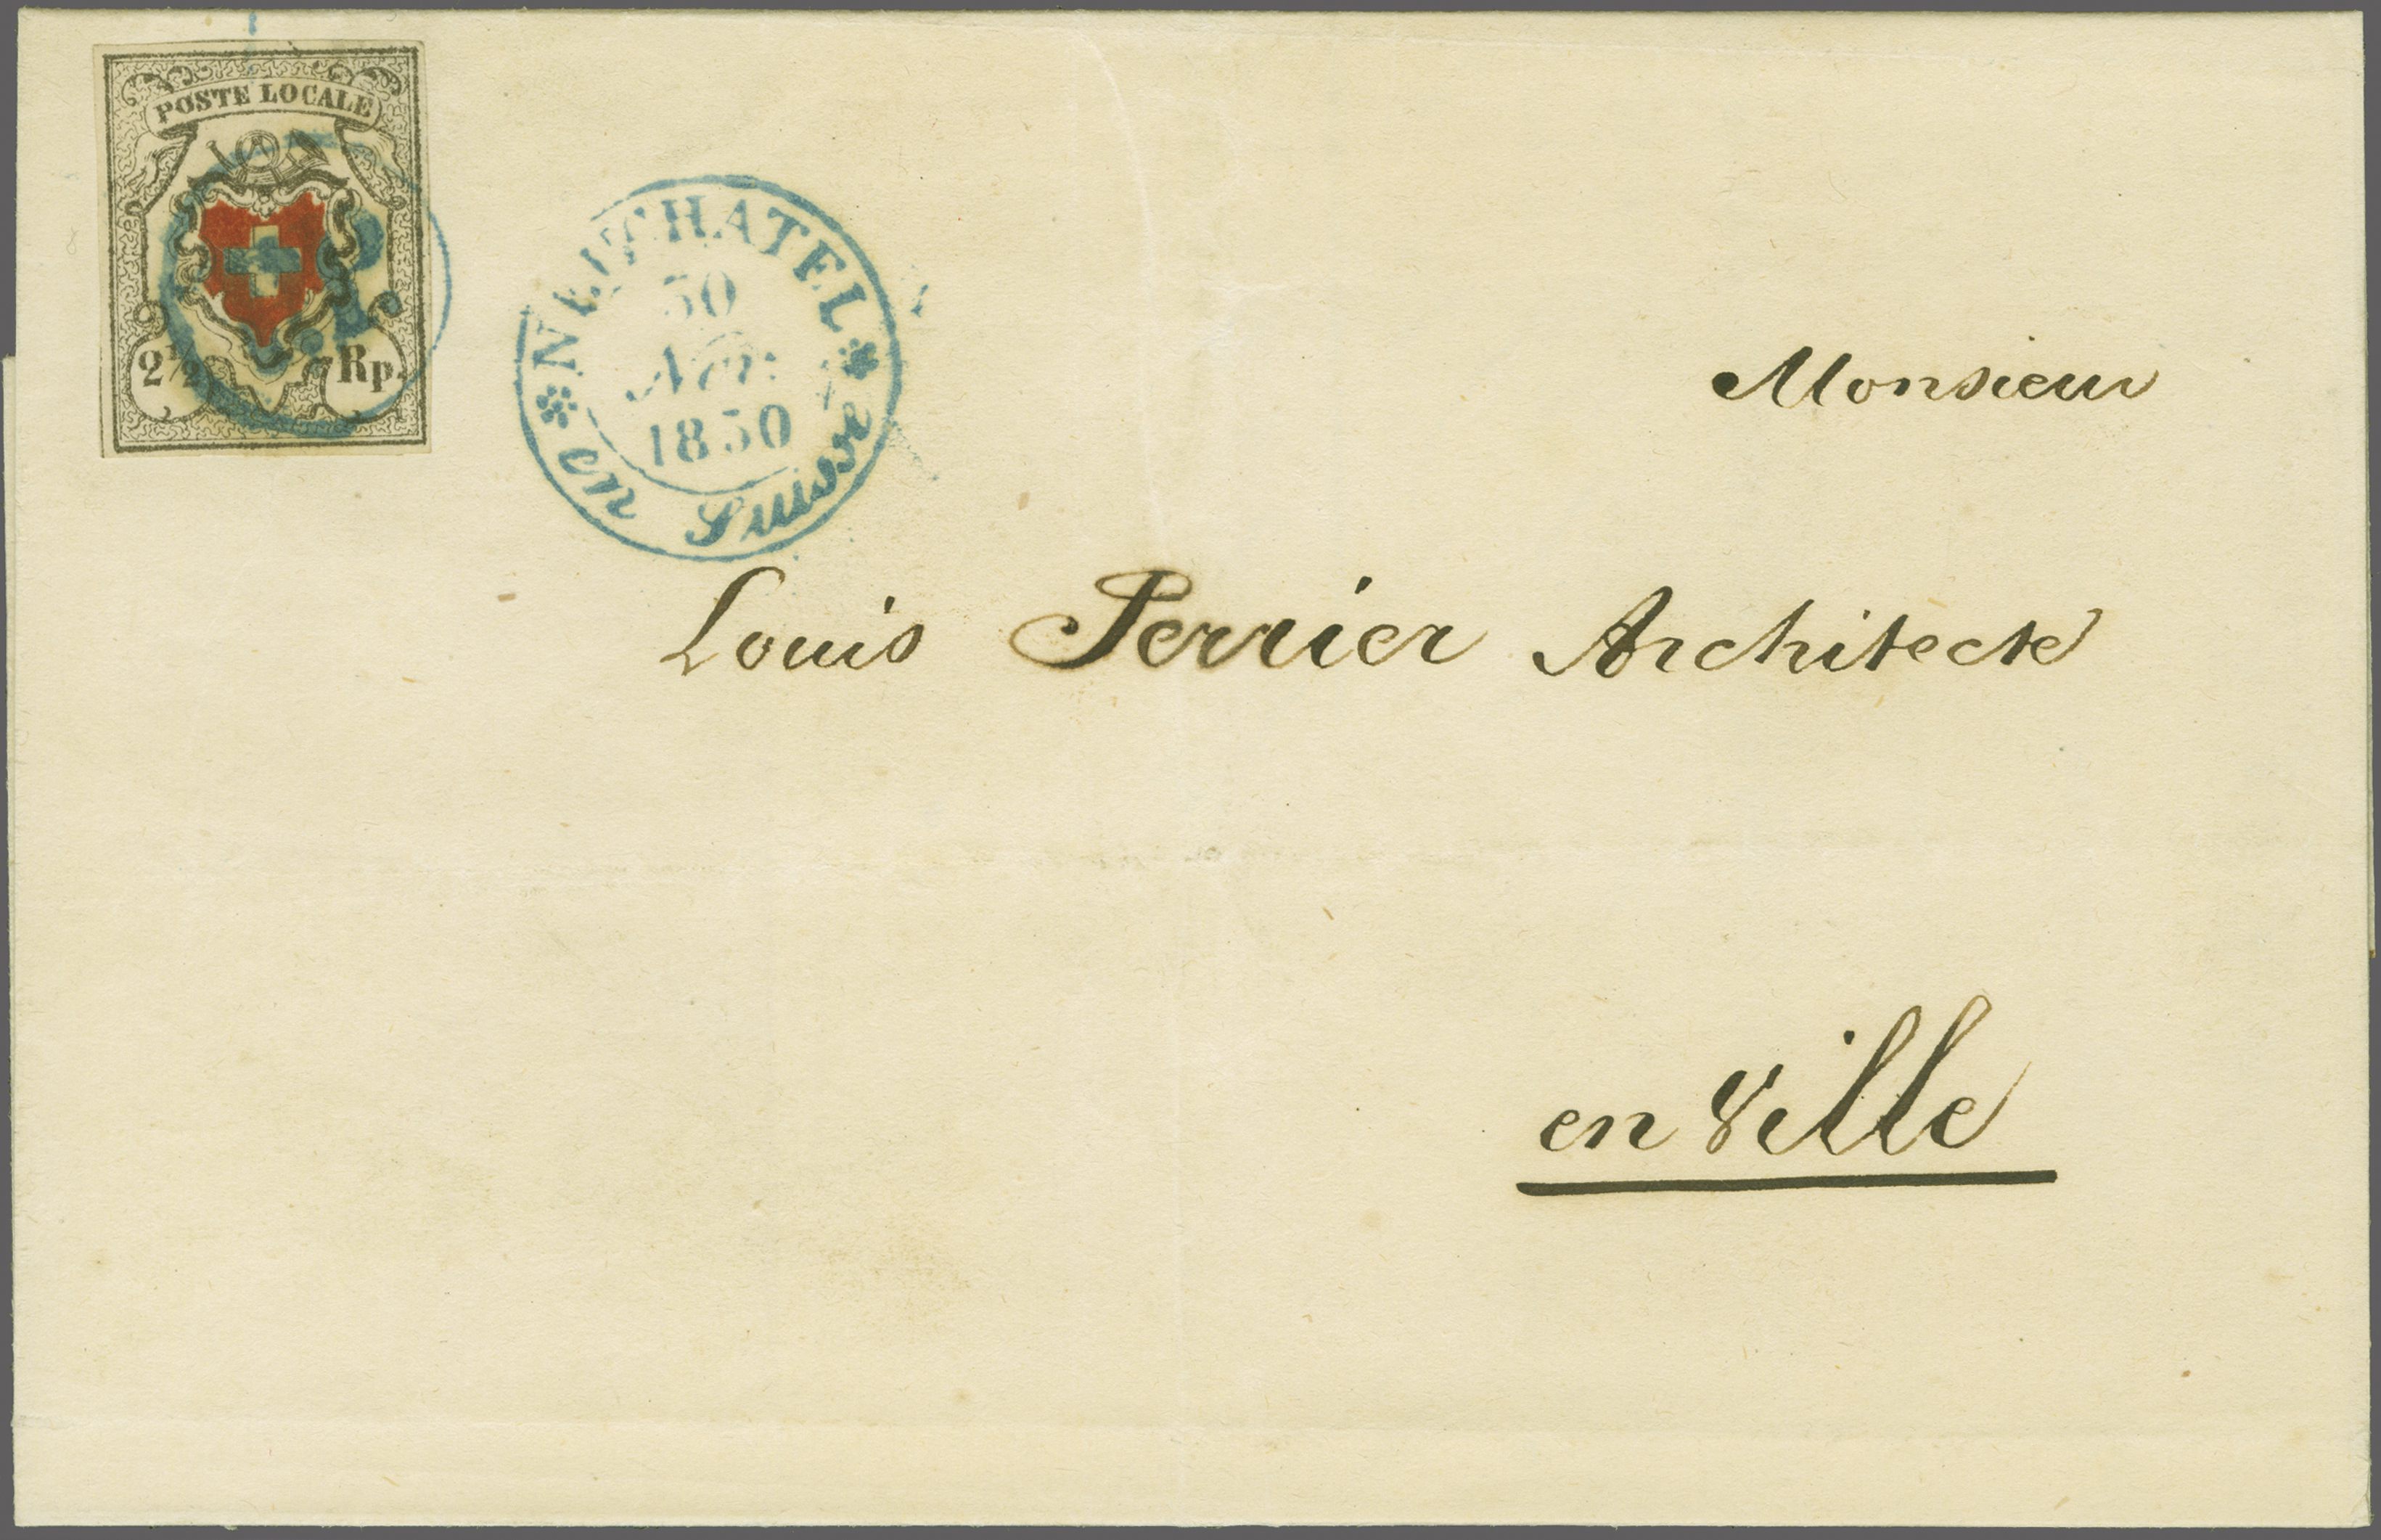 POSTE LOCALE
P.
2½ Rp.
NEUCHATEL
30
1850
en Suisse
Monsieur
Louis Perrier Architecte
en Ville